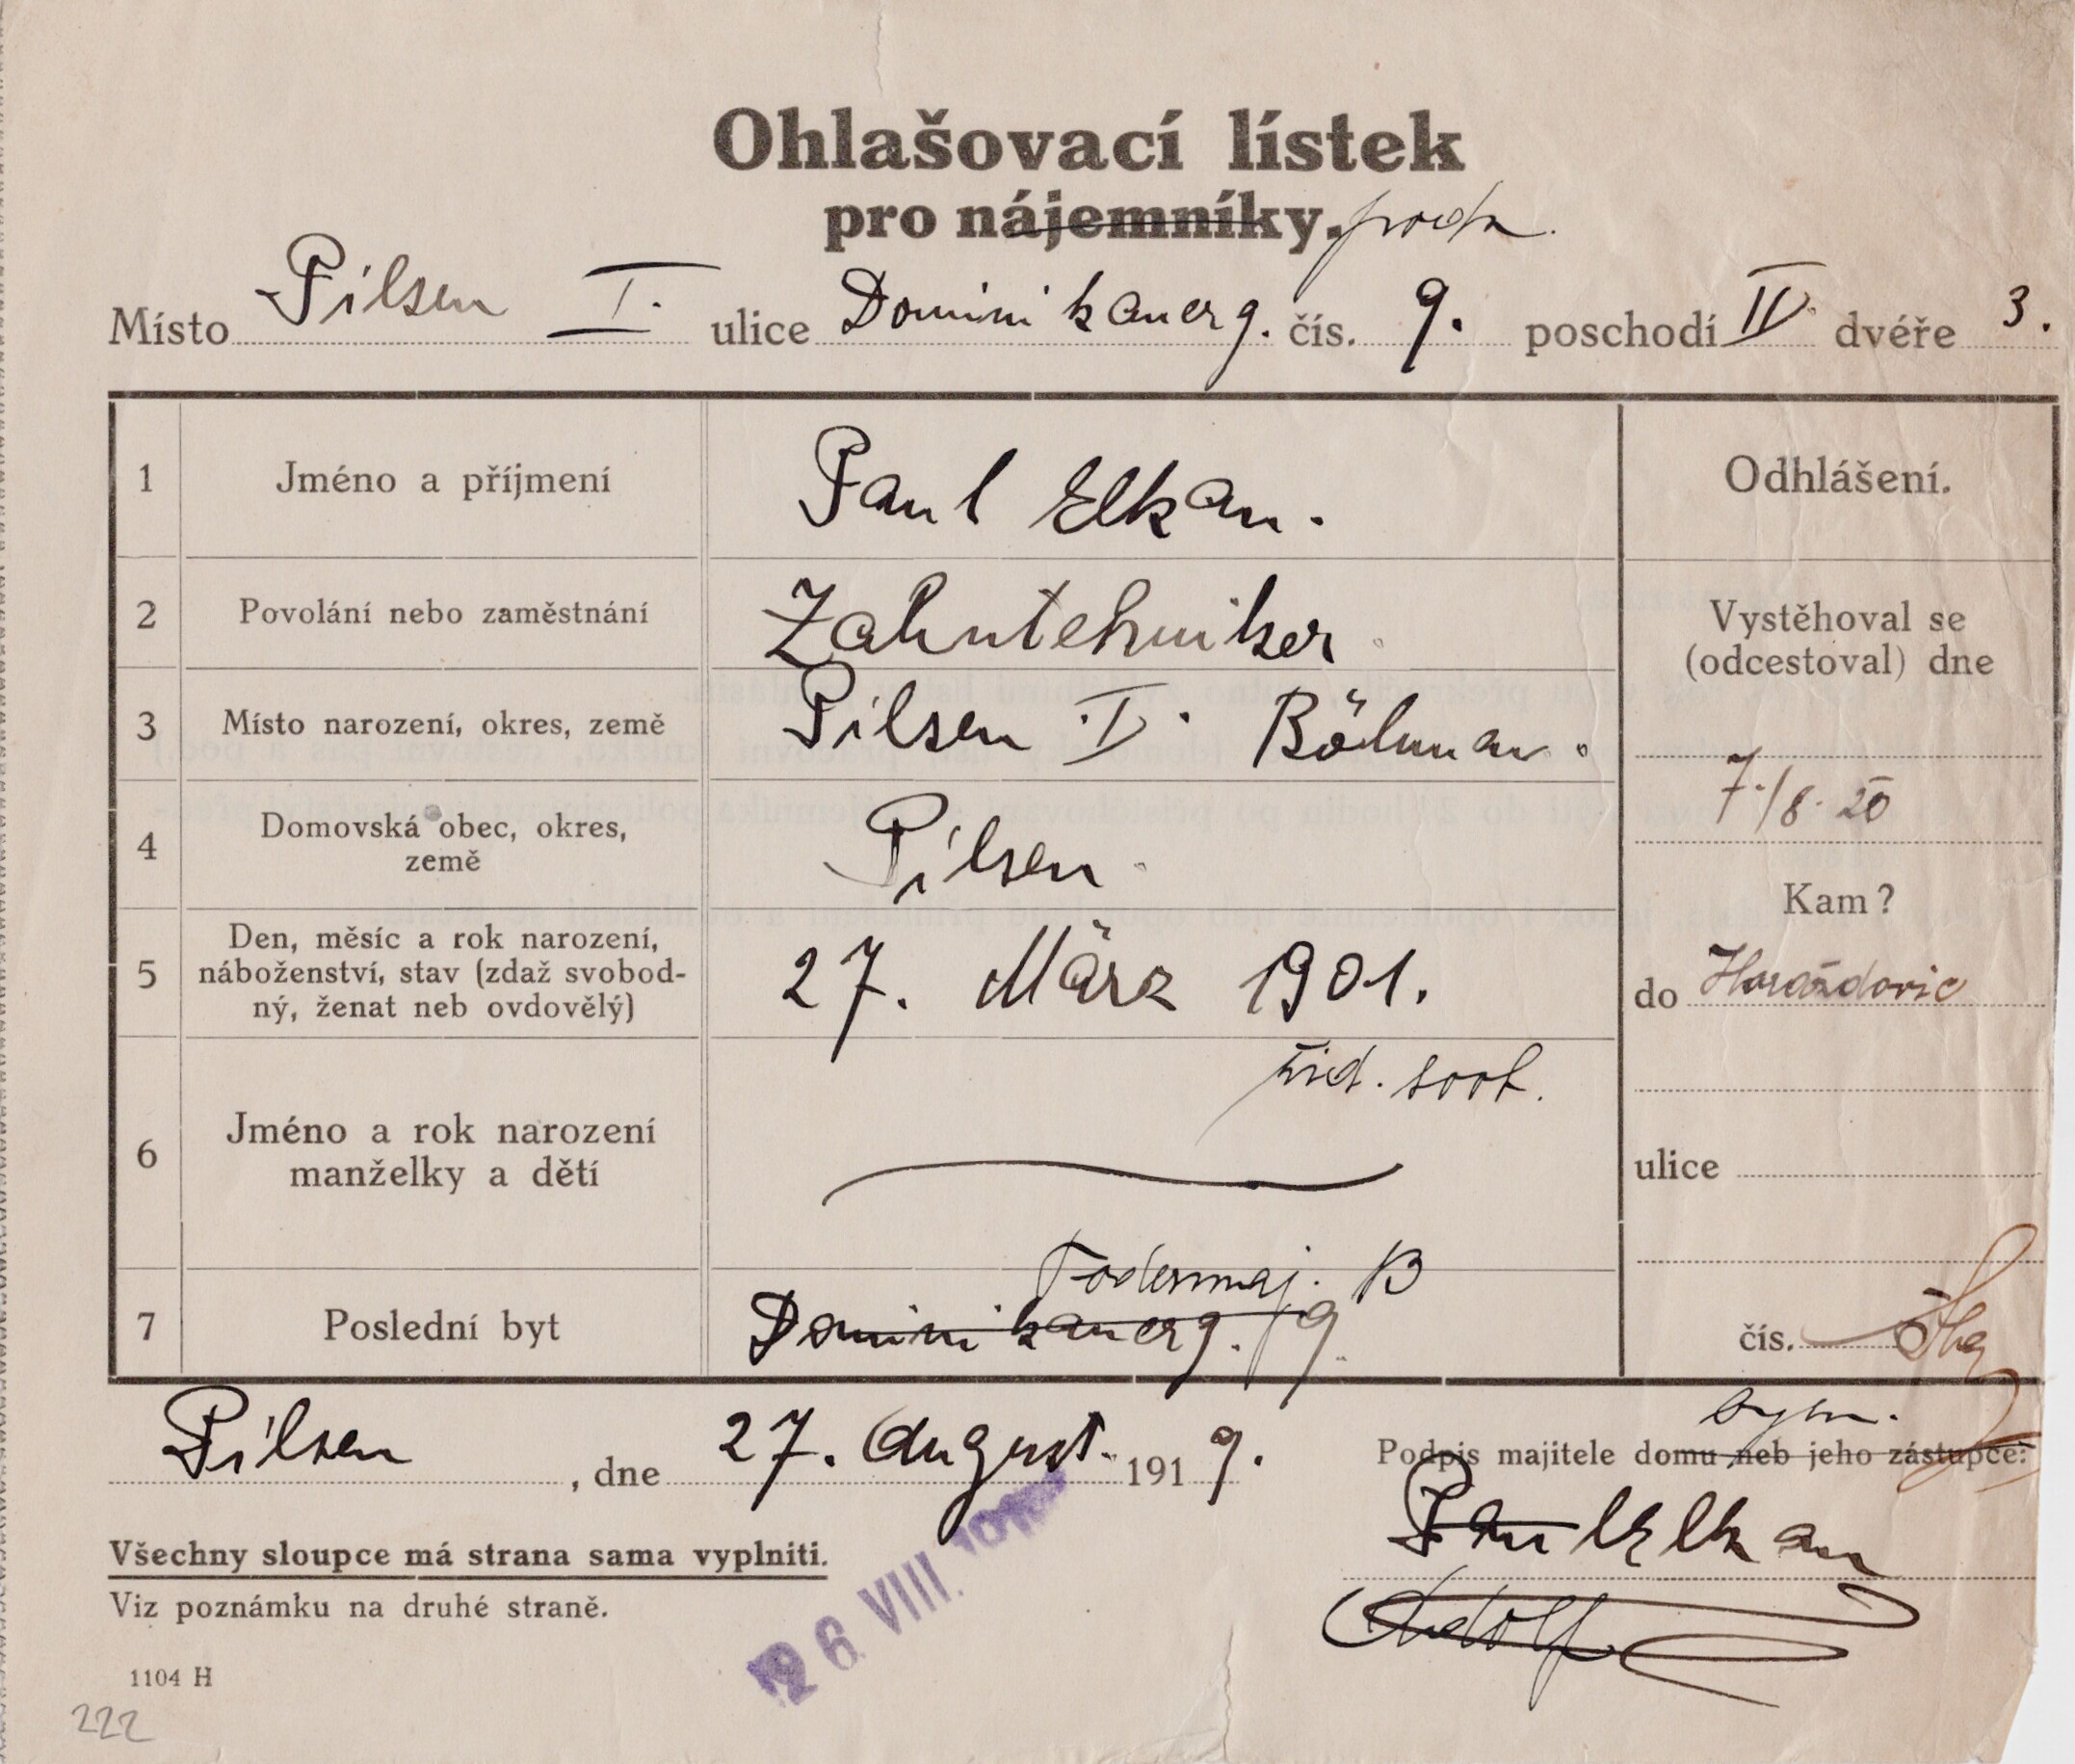 Ohlašovací lístek
pro nájemníky. podn.
Místo Pilsen I. ulice Dominikanerg. čís. 9. poschodí IV. dvéře 3.
1 Jméno a příjmení Paul Elkan.
Odhlášení.
2 Povolání nebo zaměstnání Zahntehniker
Vystěhoval se
(odcestoval) dne
3 Místo narození, okres, země Pilsen I. Böhmen.
7./8. 20
4 Domovská obec, okres,
země Pilsen
Kam?
5 Den, měsíc a rok narození,
náboženství, stav (zdaž svobod-
ný, ženat neb ovdovělý) 27. März 1901.
do Horažďovic
žid. svob.
6 Jméno a rok narození
manželky a dětí
ulice
13
7 Poslední byt Dominikanerg. 9.
čís.
Pilsen, dne 27. August 1919.
Podpis majitele domu neb jeho zástupce:
Paul Elkan
Adolf
Všechny sloupce má strana sama vyplniti.
26. VIII.
Viz poznámku na druhé straně.
1104 H
222